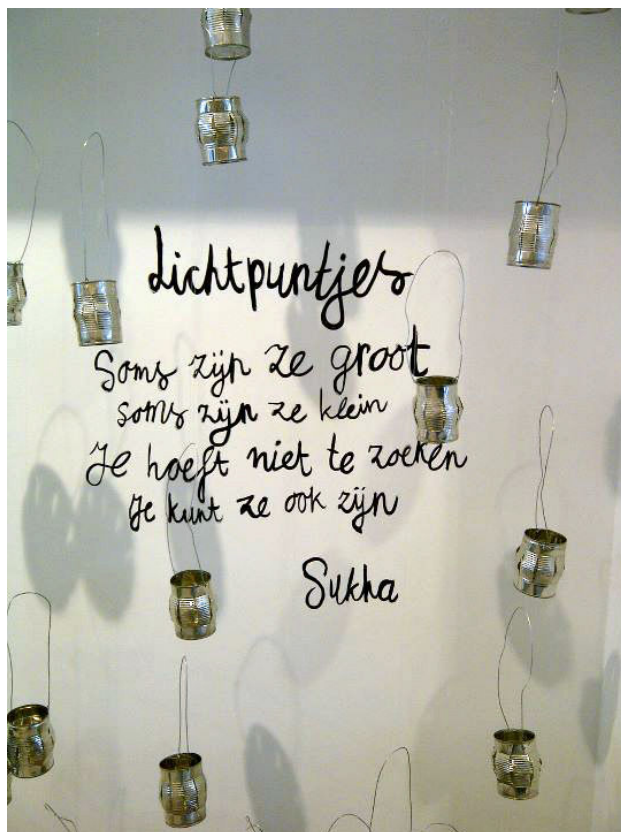 Lichtpuntjes
Soms zijn ze groot
soms zijn ze klein
Je hoeft niet te zoeken
Je kunt ze ook zijn
Sukha